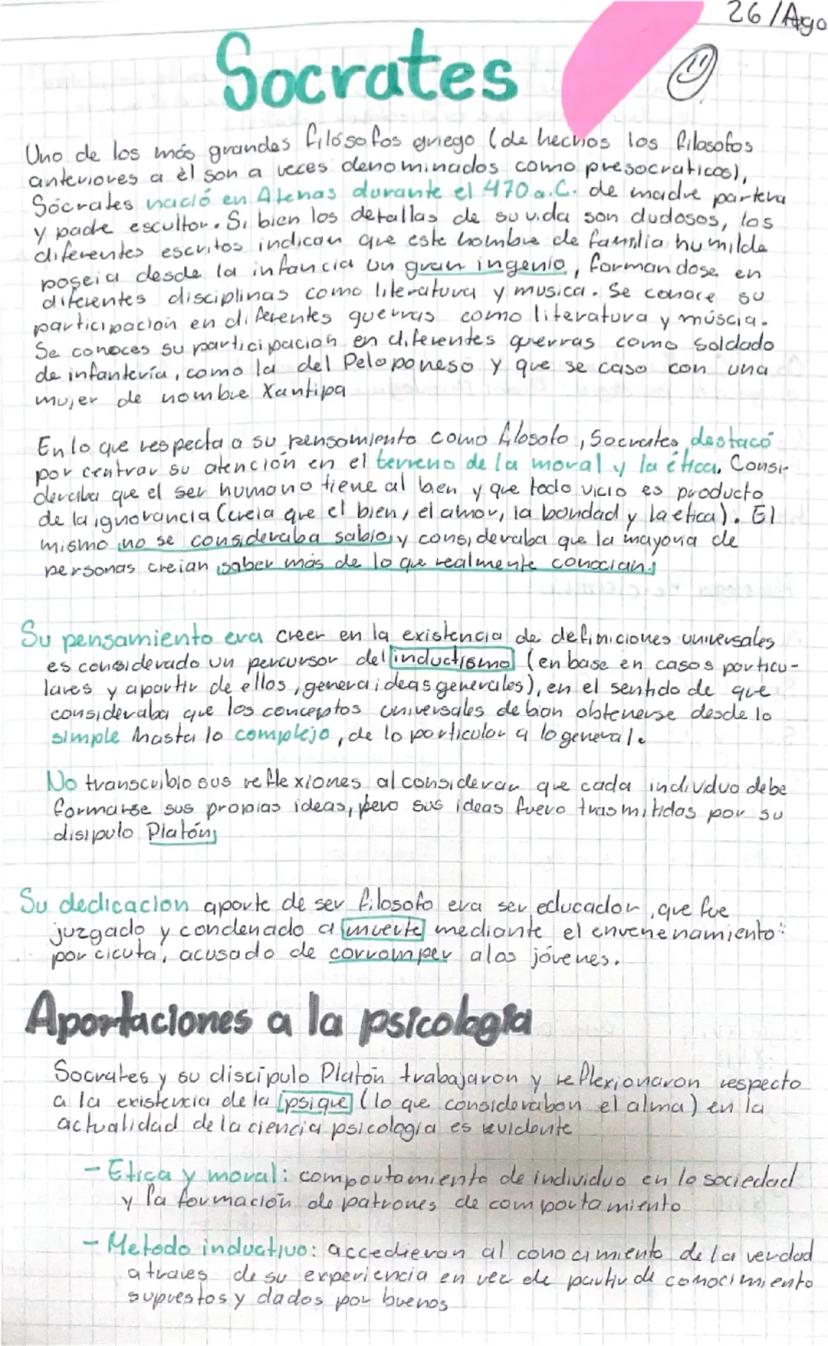 26/Ago
Socrates
Uno de los más grandes filósofos griego (de hechos los filosofos
anteriores a él son a veces denominados como presocraticos),
Sócrates nació en Atenas durante el 470 a.C. de madre partera
y padre escultor. Si bien los detalles de su vida son dudosos, los
diferentes escritos indican que este hombre de familia humilde
poseia desde la infancia un gran ingenio, formandose en
diferentes disciplinas como literatura y musica. Se conoce su
participacion en diferentes guerras como literatura y múscia.
Se conoces su participacion en diferentes guerras como soldado
de infantería, como la del Peloponeso y que se caso con una
mujer de nombre Xantipa
En lo que respecta a su pensamiento como filosofo, Socrates destacó
por centrar su atención en el terreno de la moral y la ética. Consi-
deraba que el ser humano tiene al bien y que todo vicio es producto
de la ignorancia (creia que el bien, el amor, la bondad y la etica). El
mismo no se consideraba sabio y consideraba que la mayoria de
personas creian saber más de lo que realmente conocian.
Su pensamiento era creer en la existencia de definiciones universales
es considerado un percursor del inductismo (en base en casos particu-
lares y apartir de ellos, genera ideas generales), en el sentido de que
consideraba que los conceptos universales debian obtenerse desde lo
simple hasta lo complejo, de lo particular a lo general.
No transcribio sus reflexiones al consideran que cada individuo debe
formarse sus propias ideas, pero sus ideas fuero trasmitidas por su
disipulo Platón
Su dedicacion aparte de ser filosofo era ser educador, que fue
juzgado y condenado a muerte mediante el envenenamiento
por cicuta, acusado de corromper a los jóvenes.
Aportaciones a la psicologia
Socrates y su discipulo Platón trabajaron y reflexionaron respecto
a la existencia de la psique (lo que considerabon el alma) en la
actualidad de la ciencia psicologia es evidente
- Etica y moral: comportamiento de individuo en la sociedad
y la formación de patrones de comportamiento
- Metodo inductivo: accedieran al conocimiento de la verdad
a traves de su experiencia en vez de partir de conocimiento
supuestos y dados por buenos